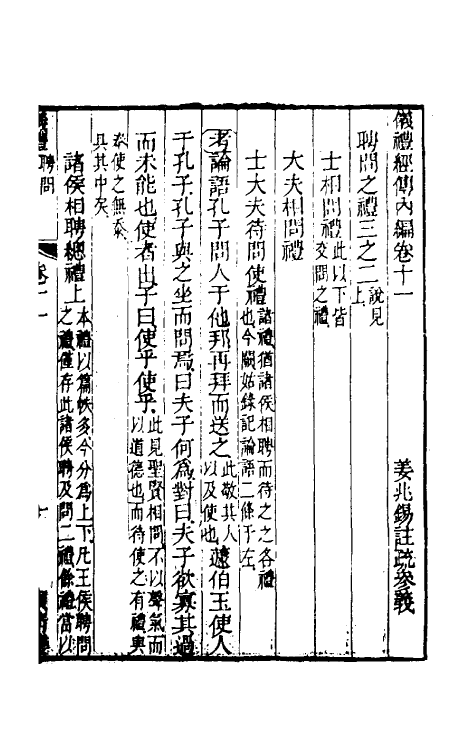 儀禮經傳內編卷十一
姜兆錫註疏參義
聘問之禮三之二說見上
士相問禮此以下皆交問之禮
大夫相問禮
士大夫待問使禮諸禮猶諸侯相聘而待之之各禮也今闕姑錄記論語二條于左
考論語孔子問人于他邦再拜而送之此敬其人以及使也蘧伯玉使人
于孔子孔子與之坐而問焉曰夫子何為對曰夫子欲寡其過
而未能也使者出子曰使乎使乎此見聖賢相問不以聲氣而以道德也而待使之有禮與
奉使之無忝具其中矣
諸侯相聘總禮上本禮以篇帙多今分為上下凡王侯聘問之禮僅存此諸侯聘及問二禮餘禮當以
聘問
卷十一